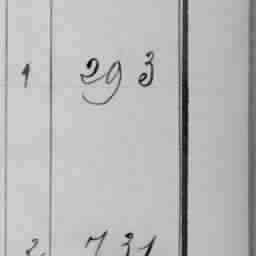 1 293
2 731